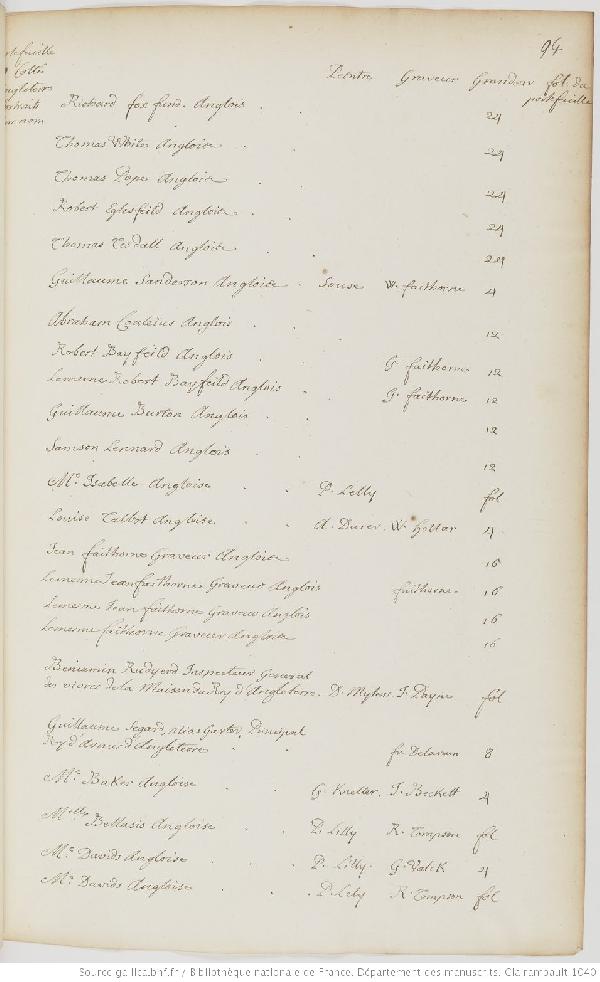 94
Peintre Graveur Grandeur fol. du
portfeuille
Richard fox fund. Anglois 24
Thomas White Anglois 24
Thomas Pope Anglois 24
Robert Eglesfeild Anglois 24
Thomas Tesdall Anglois 24
Guillaume Sanderson Anglois Souse W. faithorne 4
Abraham Coaleius Anglois 12
Robert Bayfeild Anglois G. faithorne 12
Lememe Robert Bayfeild Anglois G. faithorne 12
Guillaume Burton Anglois 12
Samson Lennard Anglois 12
Me. Isabelle Angloise P. Lelly fol
Louise Talbot Angloise A. Durer. W. Hollar 4
Jean faithorne Graveur Anglois 16
Lememe Jean faithorne Graveur Anglois faithorne 16
Lemesme Jean faithorne Graveur Anglois 16
Lemesme faithorne Graveur Anglois 16
Beniamin Rudyerd Inspecteur General
des vivres de la Maison du Roy d'Angleterre. D. Mytens J. Payne fol
Guillaume Segard, alias Garter, Principal
Roy d'Armes d'Angleterre fr. Delaram 8
Me. Baker Angloise G. Kneller. J. Beckett 4
Melle Bellasis Angloise P. Lilly R. Tompson fol
Me. Davids Angloise P. Lilly. G. Valck 4
Me. Davids Angloise P. Lely R. Tompson fol
Source gallica.bnf.fr / Bibliothèque nationale de France. Département des manuscrits. Clairambault 1040